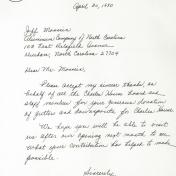 April 20, 1980
Jeff Mannix
Aluminum Company of North Carolina
103 East Hilsfield Avenue
Durham, North Carolina 27704
Dear Mr. Mannix,
Please accept my sincere thanks, on
behalf of all the Charles House board and
staff members for your generous donation
of gutters and downspouts for Charles House.
We hope you will be able to visit
us after our opening next month to see
what your contribution has helped to make
possible.
Sincerely,